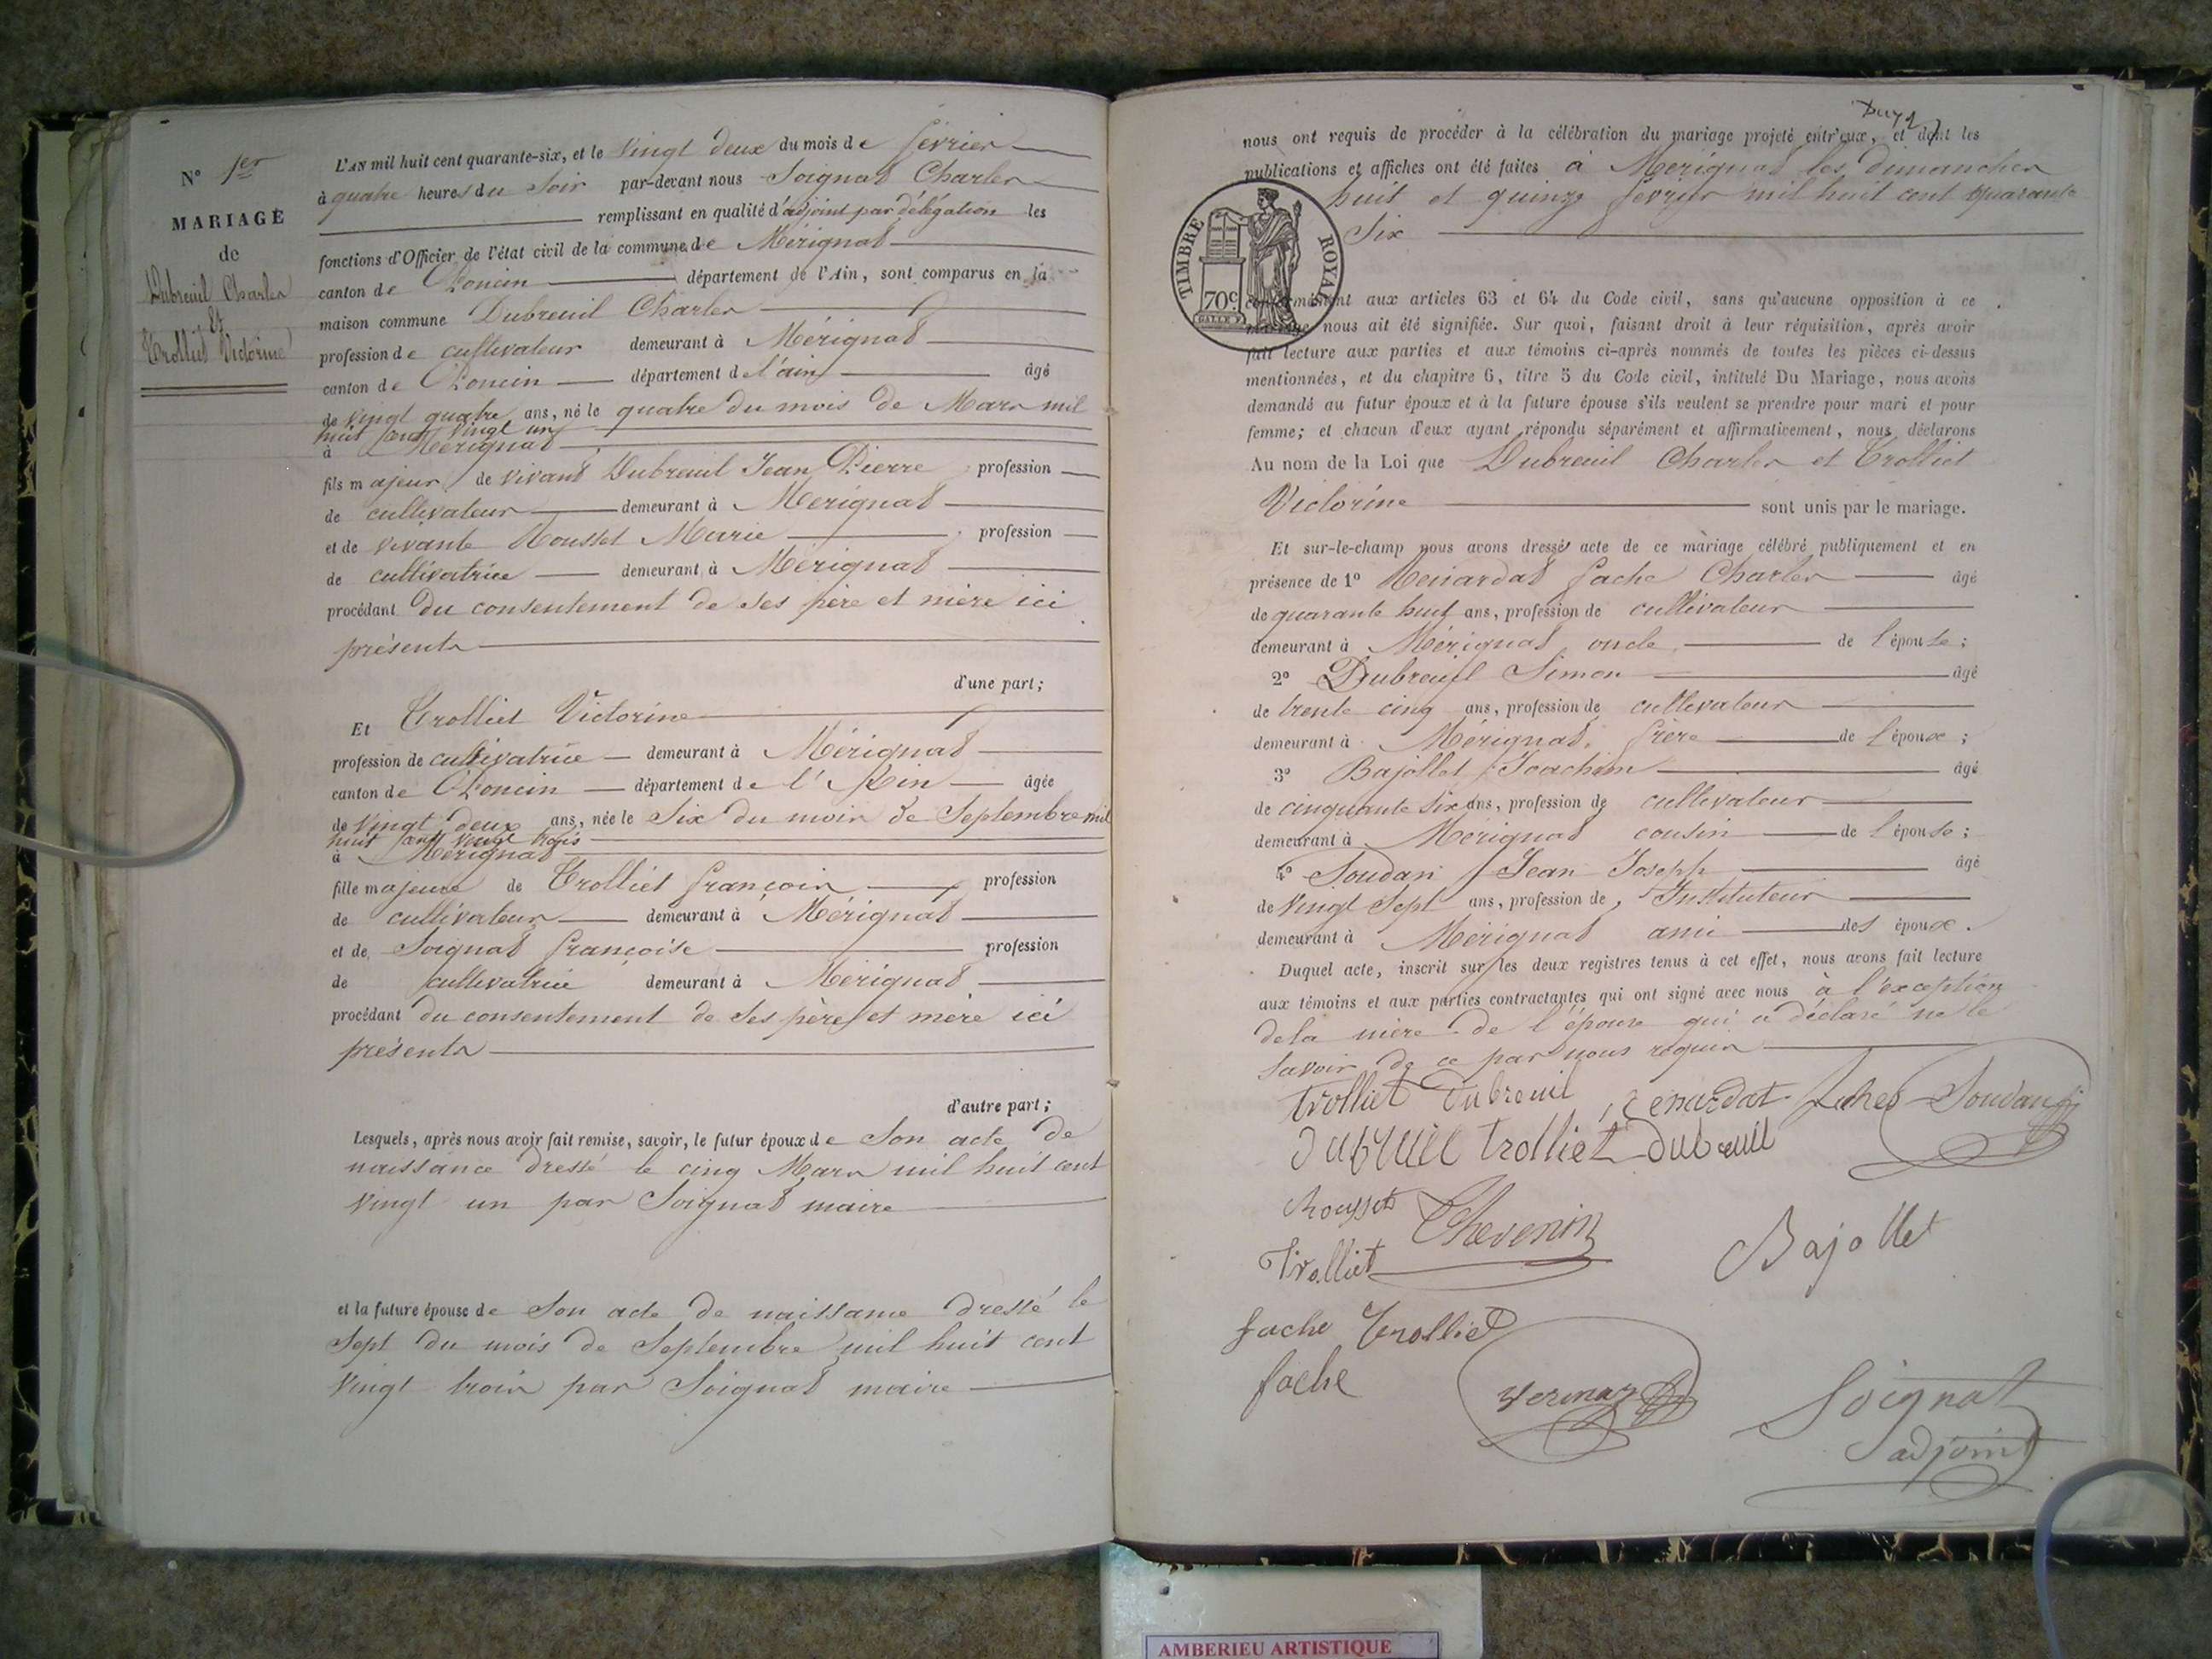 N° 1er
MARIAGE
de
Dubreuil Charles
Et
Trolliet Victorine
L'AN mil huit cent quarante-six, et le vingt deux du mois de février
à quatre heures du Soir par-devant nous Soignat Charles
remplissant en qualité d'adjoint par délégation les
fonctions d'Officier de l'état civil de la commune de Mérignat
canton de Poncin département de l'Ain, sont comparus en la
maison commune Dubreuil Charles
profession de cultivateur demeurant à Mérignat
canton de Poncin département de l'ain âgé
de vingt quatre ans, né le quatre du mois de Mars mil
huit cent vingt un
à Mérignat
fils majeur de vivant Dubreuil Jean Pierre profession
de cultivateur demeurant à Merignat
et de vivante Rousset Marie profession
de cultivatrice demeurant à Merignat
procédant du consentement de ses père et mère ici
présents
d'une part;
Et Trolliet Victorine
profession de cultivatrice demeurant à Mérignat
canton de Poncin département de l'Ain âgée
de vingt deux ans, née le Six du mois de Septembre mil
huit cent vingt trois
à Merignat
fille majeure de Trolliet françois profession
de cultivateur demeurant à Mérignat
et de Soignat françoise profession
de cultivatrice demeurant à Merignat
procédant du consentement de ses père et mère ici
présents
d'autre part;
Lesquels, après nous avoir fait remise, savoir, le futur époux de Son acte de
naissance dressé le cinq Mars mil huit cent
vingt un par Soignat maire
et la future épouse de Son acte de naissance dressé le
Sept du mois de Septembre mil huit cent
vingt trois par Soignat maire
nous ont requis de procéder à la célébration du mariage projeté entr'eux, et dont les
publications et affiches ont été faites à Merignat les dimanches
huit et quinze fevrier mil huit cent quarante
Six
TIMBRE ROYAL
70c
conformément aux articles 63 et 64 du Code civil, sans qu'aucune opposition à ce
mariage nous ait été signifiée. Sur quoi, faisant droit à leur réquisition, après avoir
fait lecture aux parties et aux témoins ci-après nommés de toutes les pièces ci-dessus
mentionnées, et du chapitre 6, titre 5 du Code civil, intitulé Du Mariage, nous avons
demandé au futur époux et à la future épouse s'ils veulent se prendre pour mari et pour
femme; et chacun d'eux ayant répondu séparément et affirmativement, nous déclarons
Au nom de la Loi que Dubreuil Charles et Trolliet
Victorine sont unis par le mariage.
Et sur-le-champ nous avons dressé acte de ce mariage célébré publiquement et en
présence de 1° Renardat fache Charles âgé
de quarante huit ans, profession de cultivateur
demeurant à Mérignat oncle de l'épouse;
2° Dubreuil Simon âgé
de trente cinq ans, profession de cultivateur
demeurant à Mérignat, frère de l'époux;
3° Bajollet Joachim âgé
de cinquante six ans, profession de cultivateur
demeurant à Mérignat cousin de l'épouse;
4° Soudan Jean Joseph âgé
de vingt Sept ans, profession de Instituteur
demeurant à Mérignat ami des époux.
Duquel acte, inscrit sur les deux registres tenus à cet effet, nous avons fait lecture
aux témoins et aux parties contractantes qui ont signé avec nous à l'exception
dela mère de l'épouse qui a déclaré ne le
Savoir de ce par nous requis
trolliet Dubreuil renardat faches Soudan
Dubreuil trolliet Dubreuil
Rousset Thevenin Bajollet
Trolliet
fache Trolliet
fache
Soignat
adjoint
AMBERIEU ARTISTIQUE